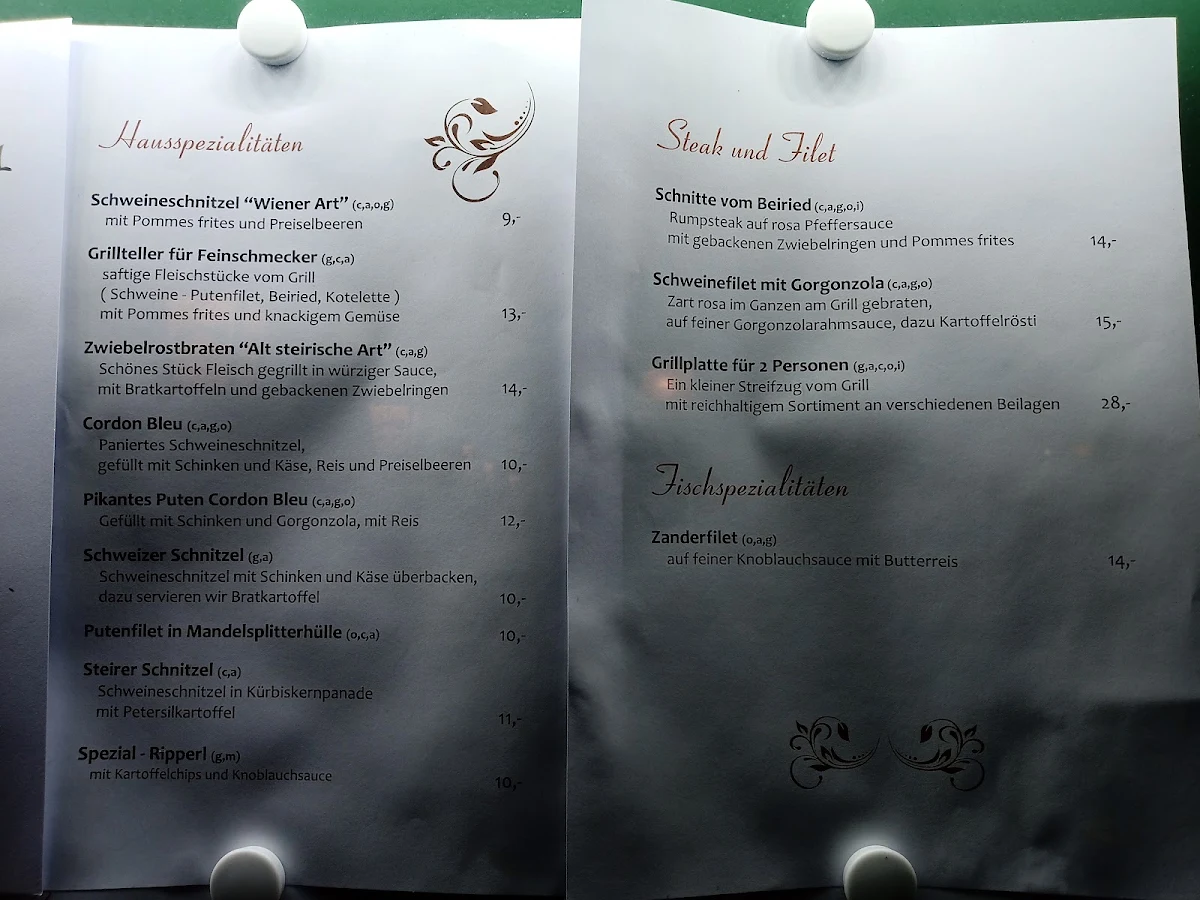 Hausspezialitäten
Schweineschnitzel “Wiener Art” (c,a,o,g)
mit Pommes frites und Preiselbeeren 9,-
Grillteller für Feinschmecker (g,c,a)
saftige Fleischstücke vom Grill
( Schweine - Putenfilet, Beiried, Kotelette )
mit Pommes frites und knackigem Gemüse 13,-
Zwiebelrostbraten “Alt steirische Art” (c,a,g)
Schönes Stück Fleisch gegrillt in würziger Sauce,
mit Bratkartoffeln und gebackenen Zwiebelringen 14,-
Cordon Bleu (c,a,g,o)
Paniertes Schweineschnitzel,
gefüllt mit Schinken und Käse, Reis und Preiselbeeren 10,-
Pikantes Puten Cordon Bleu (c,a,g,o)
Gefüllt mit Schinken und Gorgonzola, mit Reis 12,-
Schweizer Schnitzel (g,a)
Schweineschnitzel mit Schinken und Käse überbacken,
dazu servieren wir Bratkartoffel 10,-
Putenfilet in Mandelsplitterhülle (o,c,a) 10,-
Steirer Schnitzel (c,a)
Schweineschnitzel in Kürbiskernpanade
mit Petersilkartoffel 11,-
Spezial - Ripperl (g,m)
mit Kartoffelchips und Knoblauchsauce 10,-
Steak und Filet
Schnitte vom Beiried (c,a,g,o,i)
Rumpsteak auf rosa Pfeffersauce
mit gebackenen Zwiebelringen und Pommes frites 14,-
Schweinefilet mit Gorgonzola (c,a,g,o)
Zart rosa im Ganzen am Grill gebraten,
auf feiner Gorgonzolarahmsauce, dazu Kartoffelrösti 15,-
Grillplatte für 2 Personen (g,a,c,o,i)
Ein kleiner Streifzug vom Grill
mit reichhaltigem Sortiment an verschiedenen Beilagen 28,-
Fischspezialitäten
Zanderfilet (o,a,g)
auf feiner Knoblauchsauce mit Butterreis 14,-